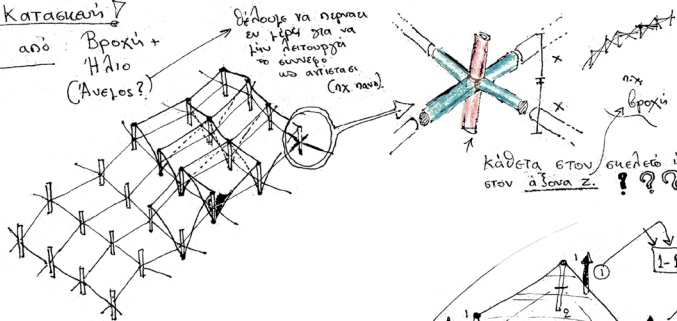 Κατασκευή
από Βροχή +
Ήλιο
(Άνεμος?)
θέλουμε να περνάει
εν μέρει για να
μην λειτουργεί
το σύννεφο
ως αντίσταση
(πχ πανό).
x
x
πχ
βροχή
κάθετα στον σκελετό
στον άξονα z. ! ? ? ?
1
1
1
2
1-1